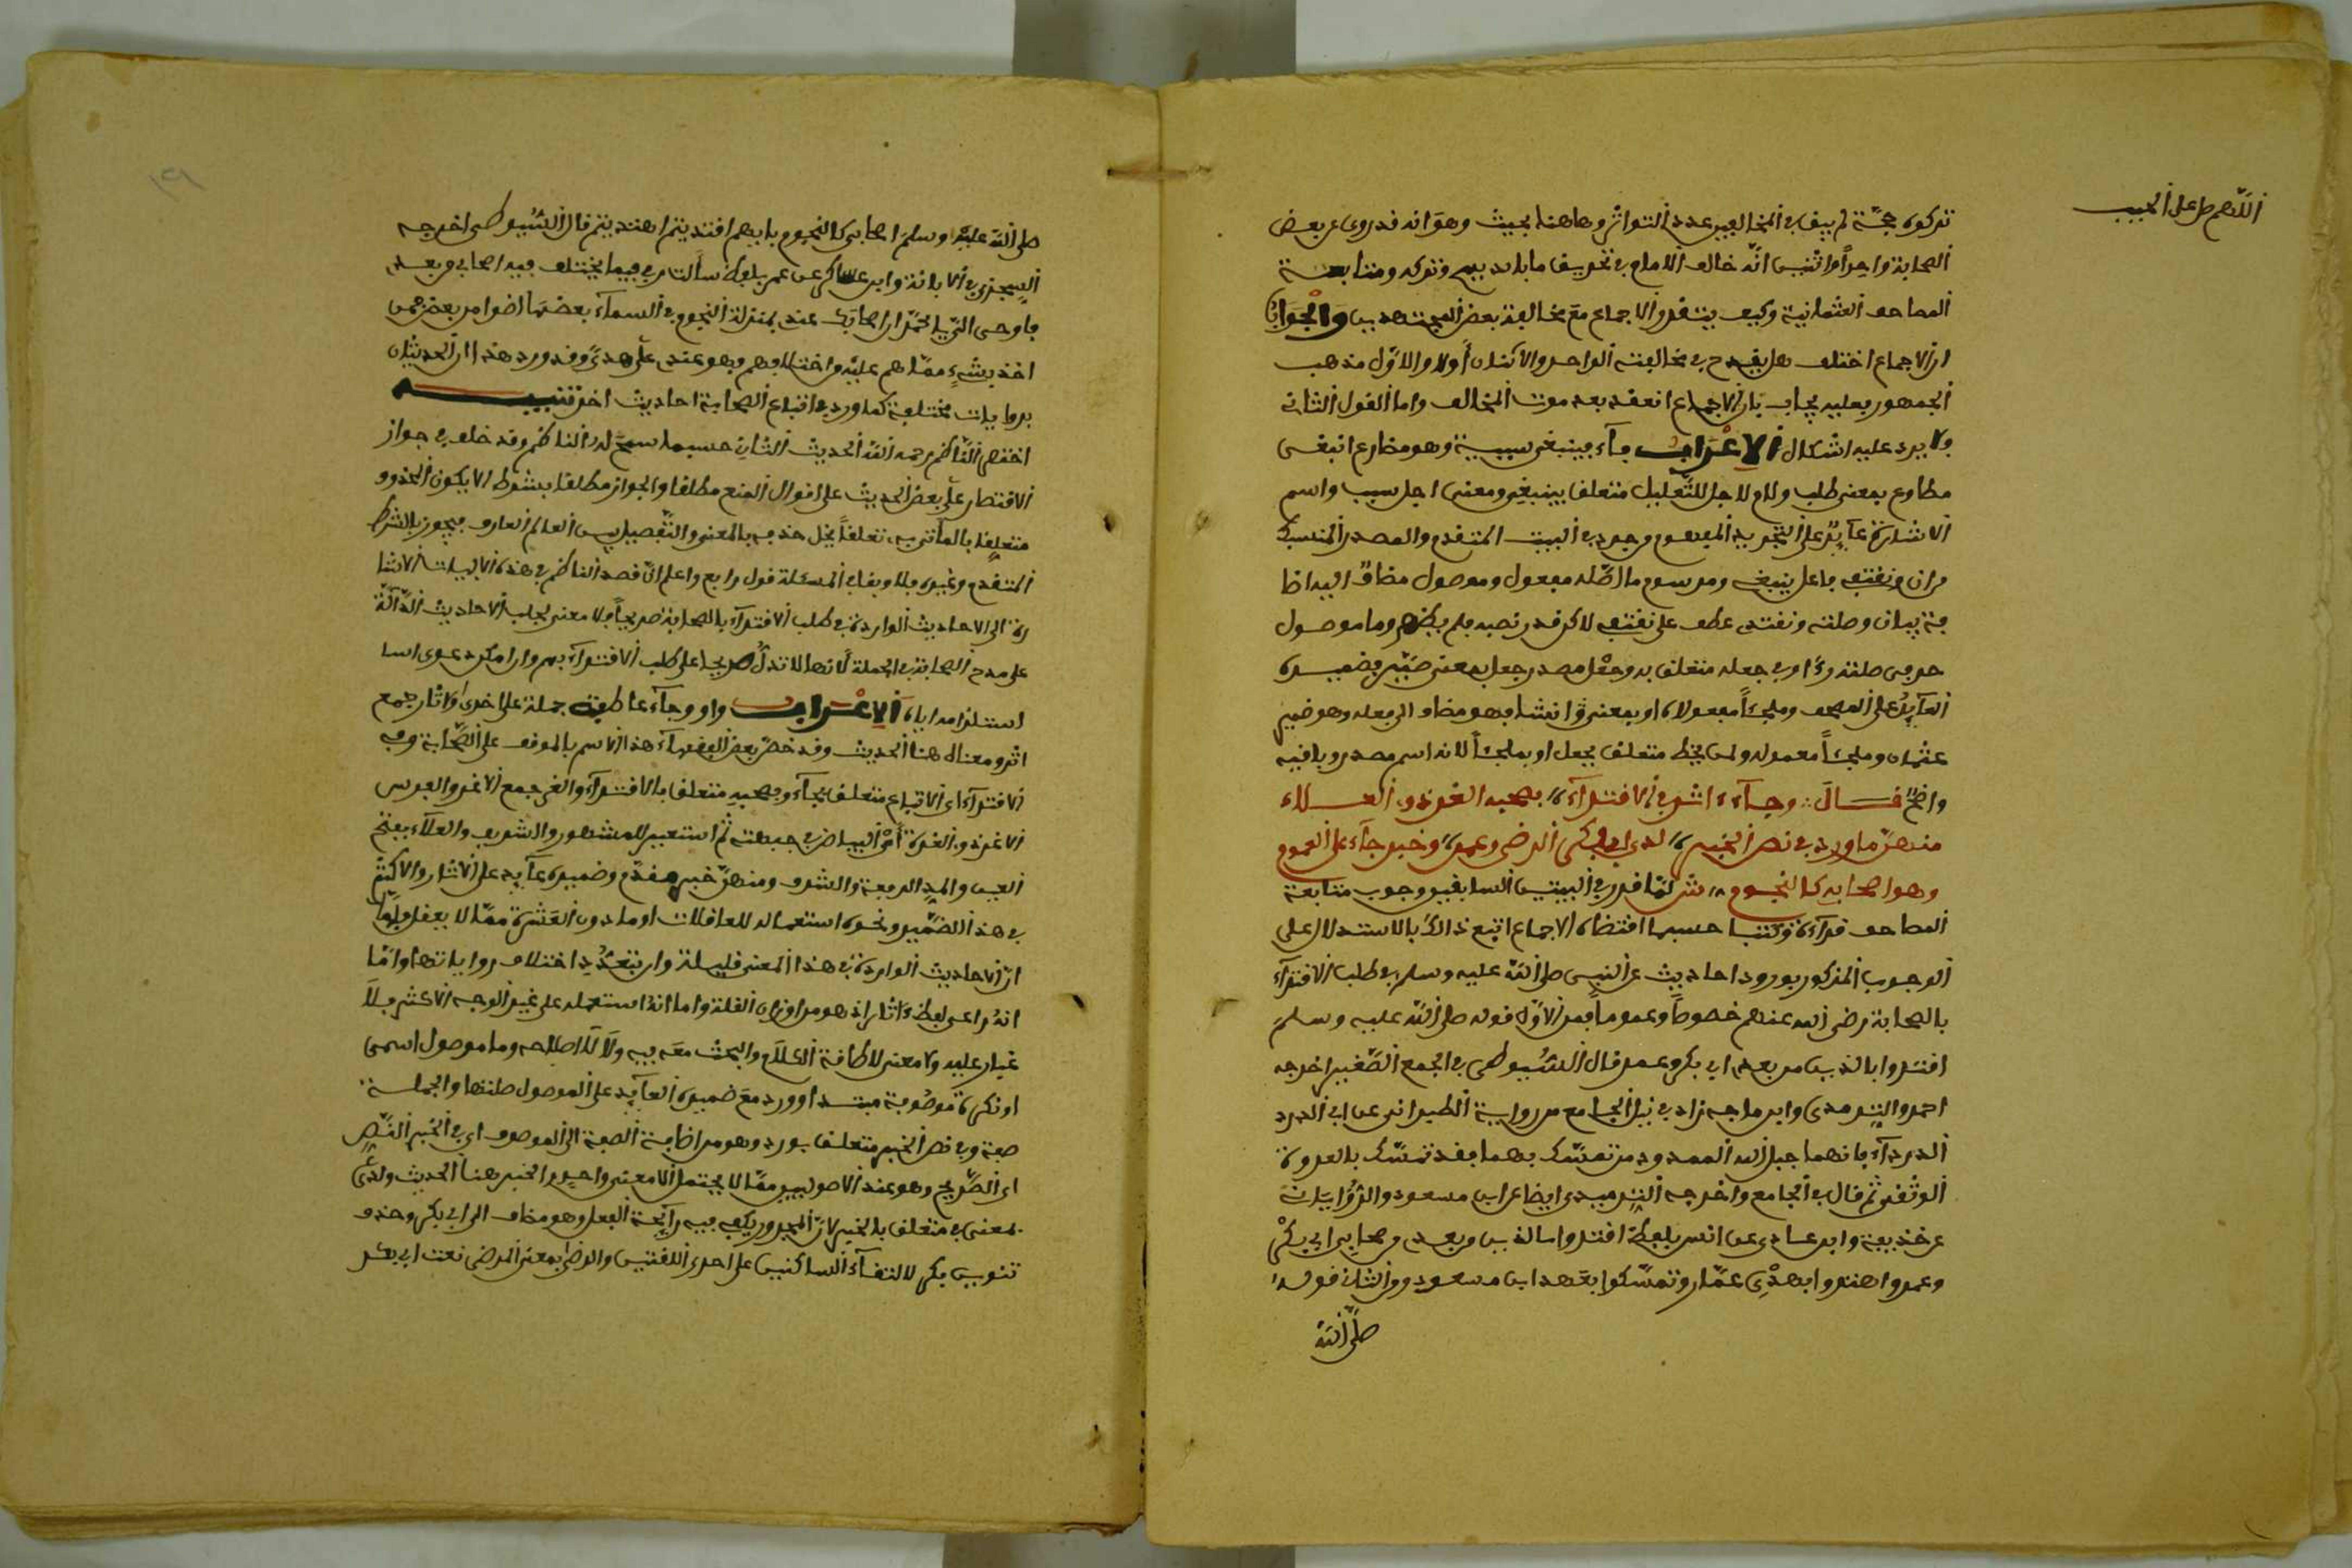 اللهم صل على الحبيب
تركوه حجة لم يبق في المخالفين عدد التواتر وهاهنا بحث وهو انه قد روى عن بعض
الصحابة واحدا واثنين انه خالف الامام في تحريف ما بايديهم وتركه ومتابعة
المصاحف العثمانية وكيف ينعقد الاجماع مع مخالفة بعض المجتهدين والجواب
ان الاجماع اختلف هل يقدح في مخالفته الواحد والاثنان أولا والاول مذهب
الجمهور فعليه يجاب بأن الاجماع انعقد بعد موت المخالف واما القول الثاني
فلا يرد عليه اشكال الاعراب فآء فينبغي سببية وهو مضارع انبغى
مطاوع بغى بمعنى طلب ولام لاجل للتعليل متعلق بينبغي ومعنى اجل سبب واسم
الاشارة عآيد على التجريد المفهوم من جرد في البيت المتقدم والمصدر المنسبك
من ان ونقتفي فاعل ينبغي ومرسوم ما اصله مفعول وموصول مضاف اليه اضا
فة بيان وصلته ونقتدي عطف على نقتفي لاكن قدر نصبه فلم يظهر وما موصول
حرفي صلته رءا وفي جعله متعلق به وجعل مصدر جعل بمعنى صير وضميره
العآيد على المصحف وملجئا مفعولاه او بمعنى انشا فهو مضاف الى فعله وهو ضمير
عثمان وملجئا معموله ولمن يخط متعلق بجعل او بملجئا لانه اسم مصدر وباقيه
واضح قال وجآء ءاثار في الاقتدآء بصحبه الغر ذوي العلاء
منهن ما ورد في نص الخبر لدى ابي بكر الرضى وعمر وخبر جآء على العموم
وهو اصحابي كالنجوم ش لما قدر في البيتين السابقين وجوب متابعة
المصاحف قرآءة وكتبا حسبما اقتضاه الاجماع اتبع ذالك بالاستدلال على
الوجوب المذكور بورود احاديث عن النبي صلى الله عليه وسلم في طلب الاقتدآء
بالصحابة رضي الله عنهم خصوصا وعموما فمن الاول قوله صلى الله عليه وسلم
اقتدوا بالذين من بعدي ابي بكر وعمر قال السيوطي في الجمع الصغير اخرجه
احمد والترمذي وابن ماجه زاد في ذيل الجامع من رواية الطبراني عن ابي الدرد
الدردآء فانهما حبل الله الممدود من تمسك بهما فقد تمسك بالعروة
الوثقى ثم قال في الجامع واخرجه الترميذي ايضا عن ابن مسعود والرؤياني
عن حذيفة وابن عدي عن انس بلفظ اقتدوا بالذين من بعدي من اصحابي ابي بكر
وعمر واهتدوا بهدي عمار وتمسكوا بعهد ابن مسعود ومن الثاني قوله
صلى الله
صلى الله عليه وسلم اصحابي كالنجوم بايهم اقتديتم اهتديتم قال السيوطي اخرجه
السجزي في الابانة وابن عساكر عن عمر بلفظ سألت ربي فيما يختلف فيه اصحابي من بعدي
فاوحى الي يا محمد ان اصحابك عندي بمنزلة النجوم في السمآء بعضها اضوا من بعض فمن
اخذ بشيء مما هم عليه من اختلافهم فهو عندي على هدى وقد ورد هذا ان الحديثان
بروايات مختلفة كما ورد في اتباع الصحابة احاديث اخر تنبيه
اختصر الناظم رحمه الله الحديث الثاني حسبما سمح له النظم وقد خلف في جواز
الاقتصار على بعض الحديث على اقوال المنع مطلقا والجواز مطلقا بشرط الا يكون المحذوف
متعلقا بالمأتي به تعلقا يخل حذفه بالمعنى والتفصيل بين العالم العارف فيجوز بالشرط
المتقدم وغيره فلا وبقي في المسئلة قول رابع واعلم ان قصد الناظم في هذه الابيات الاشا
رة الى الاحاديث الواردة في طلب الاقتدآء بالصحابة صريحا فلا معنى لجلب الاحاديث الدآلة
على مدح الصحابة في الجملة لانها لا تدل صريحا على طلب الاقتدآء بهم وان امكن دعوى اسا
استلزامه اياه الاعراب واو وجآء عاطفة جملة على اخرى وءاثار جمع
اثر ومعناه هنا الحديث وقد خص بعض الفقهآء هذا الاسم بالموقوف على الصحابة وفي
الاقتدآء اي الاتباع متعلق بجآء وبصحبه متعلق بالاقتدآء والغر جمع الاغر والفرس
الاغر ذو الغرة اي البياض في جبهته ثم استعير للمشهور والشريف والعلآء بفتح
العين والمد الرفعة والشرف ومنهن خبر مقدم وضميره عآيد على الاثار والاكثر
في هذا الضمير ونحوه استعماله للعاقلات او ما دون العشرة مما لا يعقل ولما
ان الاحاديث الواردة في هذا المعنى قليلة وان تعدد اختلاف رواياتها واما
انه راعى لفظ ءاثار اذ هو من اوزان القلة واما انه استعمله على غير الوجه الاكثر فلا
غبار عليه ولا معنى لاطافة الكلام والبحث معه فيه ولا لاصلاحه وما موصول اسمي
او نكرة موصوفة مبتدا وورد مع ضميره العآيد على الموصول صلتها والجملة
صفة وفي نص الخبر متعلق بورد وهو من اضافة الصفة الى الموصوف اي في الخبر النص
اي الصريح وهو عند الاصوليين مما لا يحتمل الا معنى واحدا والخبر هنا الحديث ولدى
بمعنى في متعلق بالخبر لان المجرور يكفيه رآيحة الفعل وهو مضاف الى ابي بكر وحذف
تنوين بكر لالتقآء الساكنين على احدى اللغتين والرضى بمعنى المرضي نعت ابي بكر